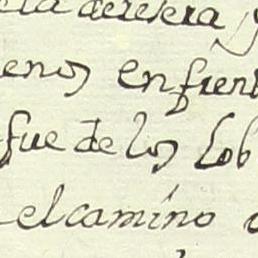 ela deresera y
enos enfrent
fue de los Lob
el camino